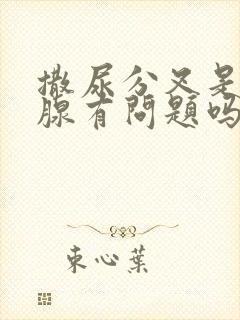 撒尿分叉是
腺有问题吗
束心葉